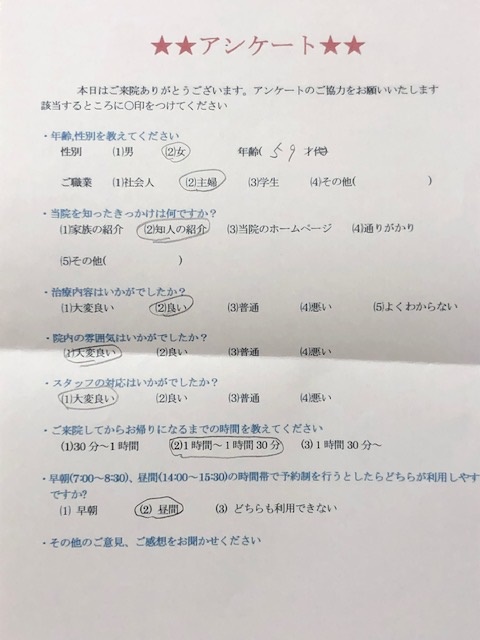 ★★アンケート★★
本日はご来院ありがとうございます。アンケートのご協力をお願いいたします
該当するところに〇印をつけてください
・年齢,性別を教えてください
性別 (1)男 (2)女 年齢( 59 才代)
ご職業 (1)社会人 (2)主婦 (3)学生 (4)その他( )
・当院を知ったきっかけは何ですか?
(1)家族の紹介 (2)知人の紹介 (3)当院のホームページ (4)通りがかり
(5)その他( )
・治療内容はいかがでしたか?
(1)大変良い (2)良い (3)普通 (4)悪い (5)よくわからない
・院内の雰囲気はいかがでしたか?
(1)大変良い (2)良い (3)普通 (4)悪い
・スタッフの対応はいかがでしたか?
(1)大変良い (2)良い (3)普通 (4)悪い
・ご来院してからお帰りになるまでの時間を教えてください
(1)30分～1時間 (2)1時間～1時間30分 (3)1時間30分～
・早朝(7:00～8:30)、昼間(14:00～15:30)の時間帯で予約制を行うとしたらどちらが利用しやす
ですか?
(1) 早朝 (2) 昼間 (3) どちらも利用できない
・その他のご意見、ご感想をお聞かせください